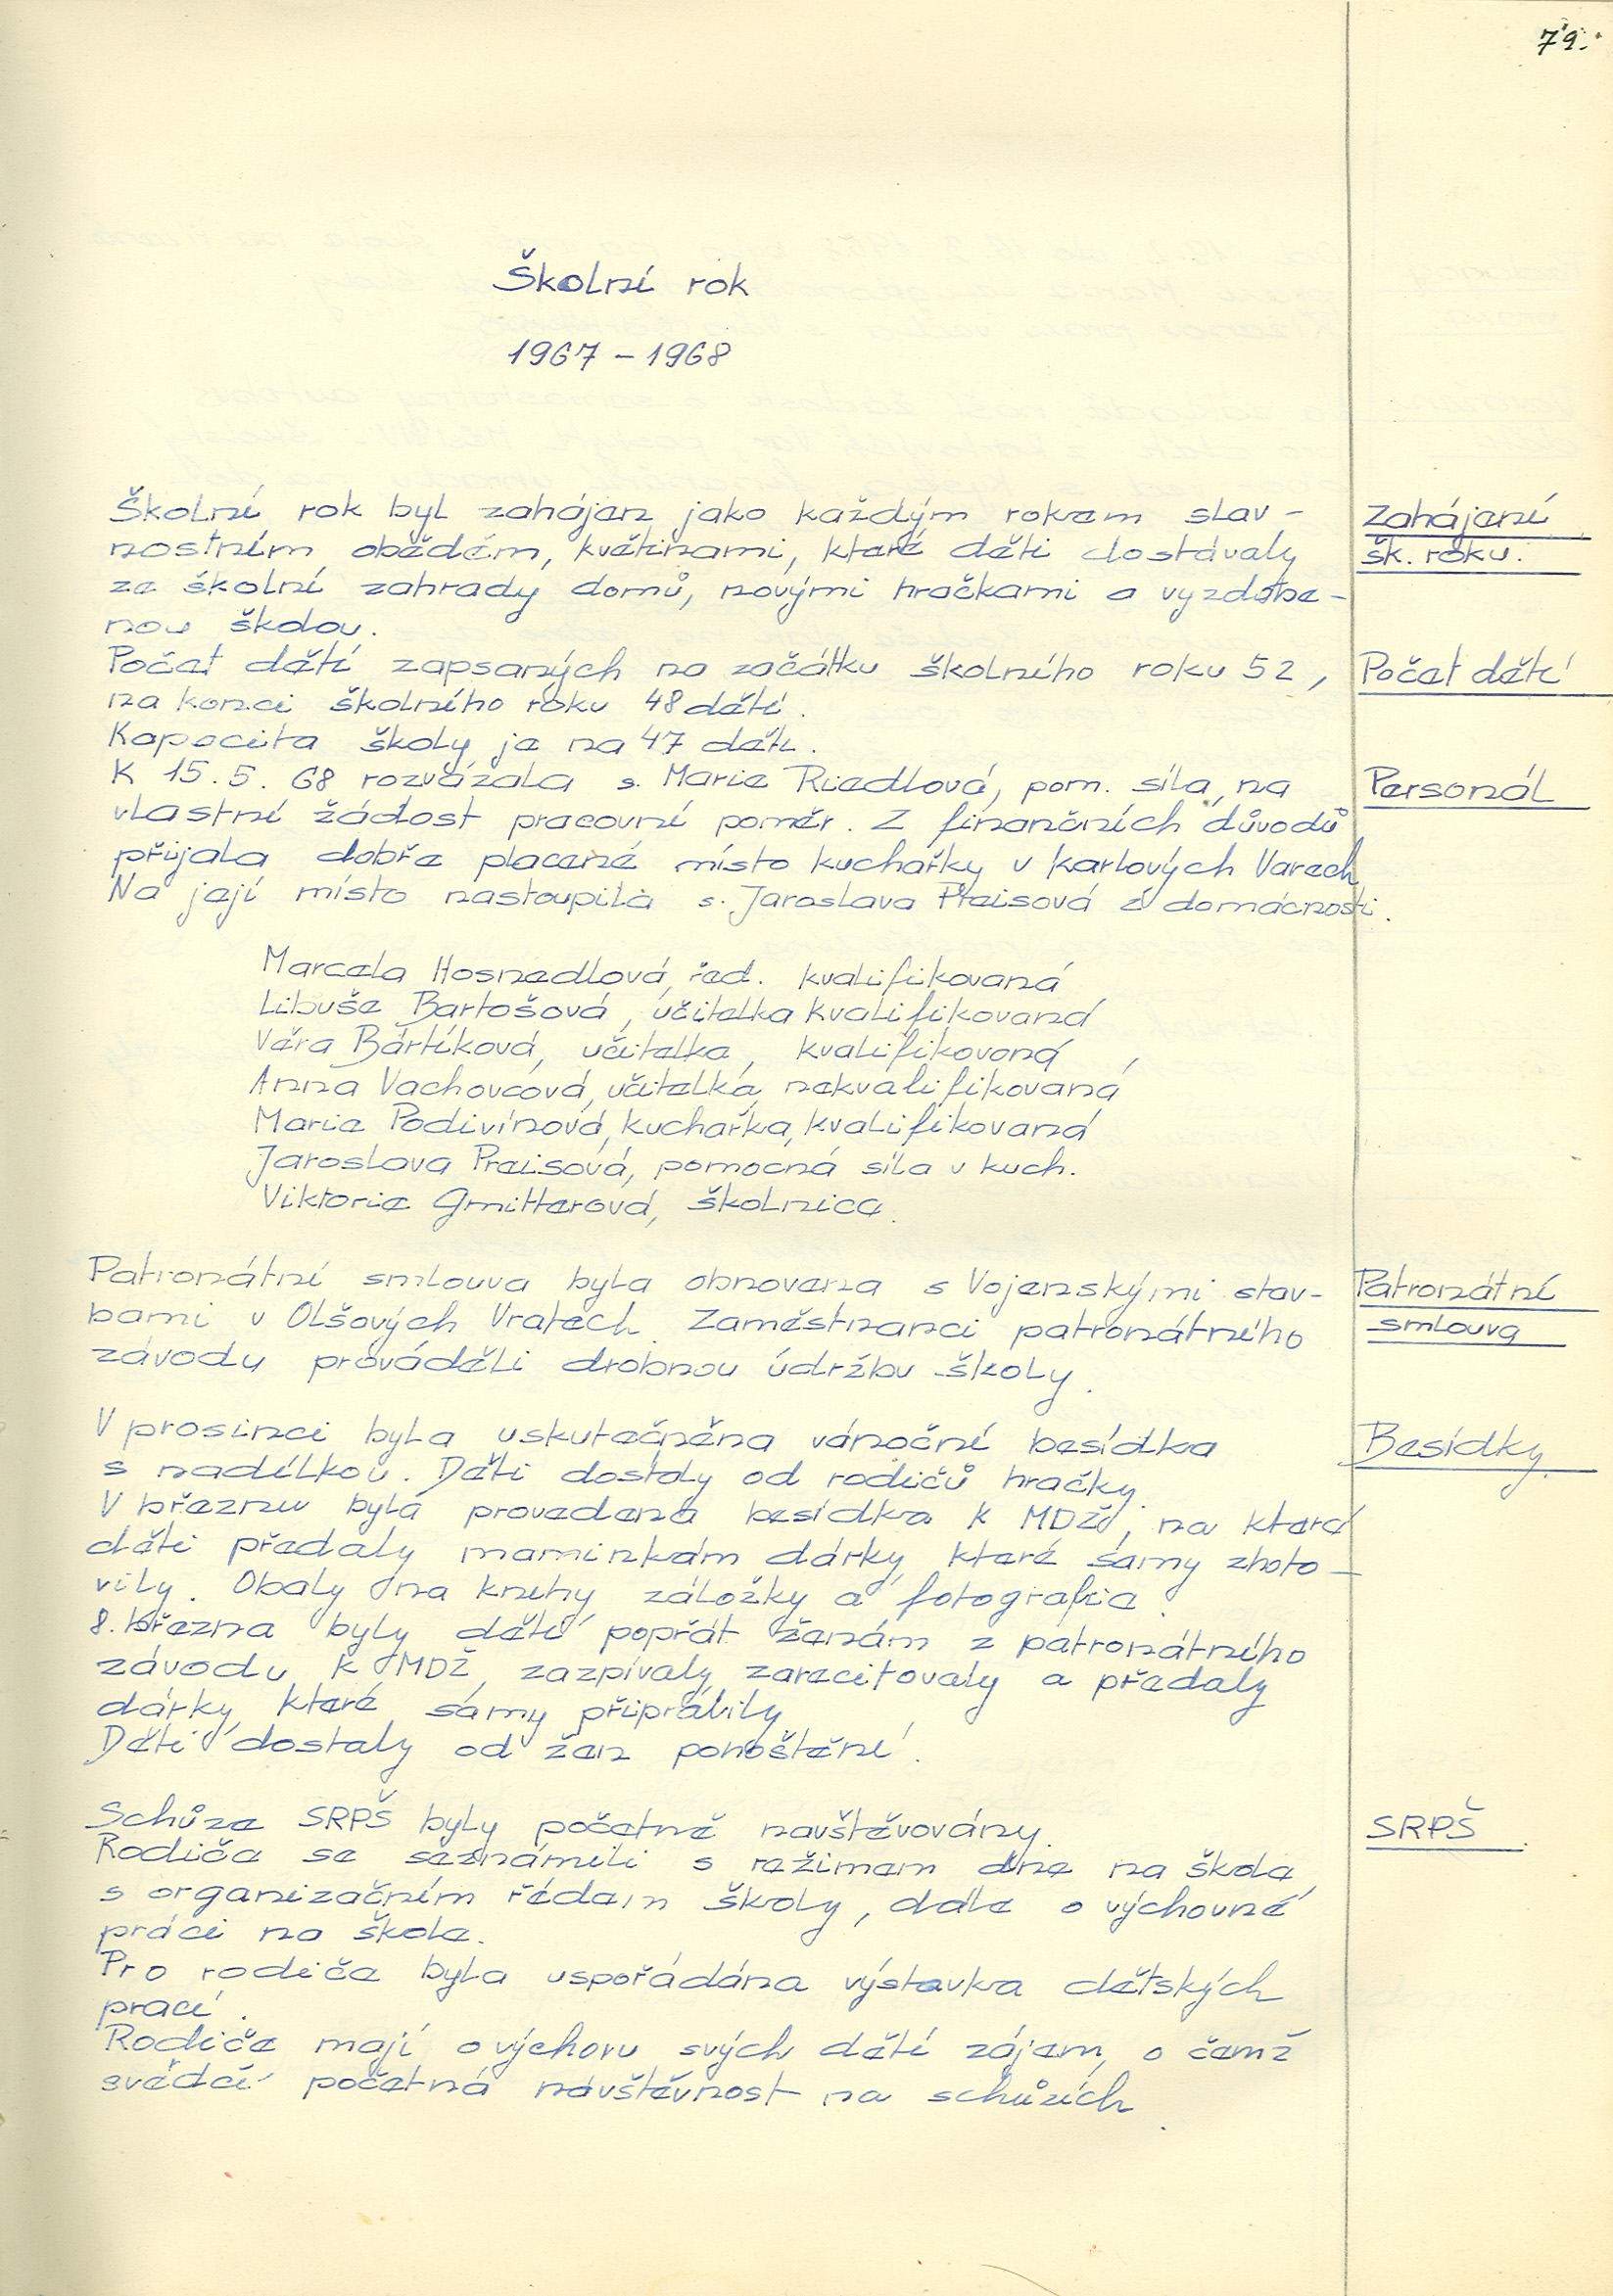 79.
Školní rok
1967 – 1968
Školní rok byl zahájen jako každým rokem slav-
nostním obědem, květinami, které děti dostávaly
ze školní zahrady domů, novými hračkami a vyzdobe-
nou školou.
Zahájení
šk. roku.
Počet dětí zapsaných na začátku školního roku 52,
na konci školního roku 48 dětí.
Kapacita školy je na 47 dětí.
Počet dětí
K 15. 5. 68 rozvázala s. Marie Riedlová, pom. síla, na
vlastní žádost pracovní poměr. Z finančních důvodů
přijala dobře placené místo kuchařky v Karlových Varech
Na její místo nastoupila s. Jaroslava Preisová z domácnosti.
Personál
Marcela Hosnedlová, řed. kvalifikovaná
Libuše Bartošová, učitelka kvalifikovaná
Věra Bártíková, učitelka, kvalifikovaná,
Anna Vachovcová, učitelka, nekvalifikovaná
Marie Podivínová, kuchařka, kvalifikovaná
Jaroslava Preisová, pomocná síla v kuch.
Viktorie Gmitterová, školnice.
Patronátní smlouva byla obnovena s Vojenskými stav-
bami v Olšových Vratech. Zaměstnanci patronátního
závodu prováděli drobnou údržbu školy.
Patronátní
smlouva
V prosinci byla uskutečněna vánoční besídka
s nadílkou. Děti dostaly od rodičů hračky.
V březnu byla provedena besídka k MDŽ, na které
děti předaly maminkám dárky, které samy zhoto-
vily. Obaly na knihy, záložky a fotografie.
8. března byly děti popřát ženám z patronátního
závodu k MDŽ, zazpívaly, zarecitovaly a předaly
dárky, které samy připravily.
Děti dostaly od žen pohoštění.
Besídky.
Schůze SRPŠ byly početně navštěvovány.
Rodiče se seznámili s režimem dne na škole,
s organizačním řádem školy, dále o výchovné
práci na škole.
Pro rodiče byla uspořádána výstavka dětských
prací.
Rodiče mají o výchovu svých dětí zájem, o čemž
svědčí početná návštěvnost na schůzích.
SRPŠ.